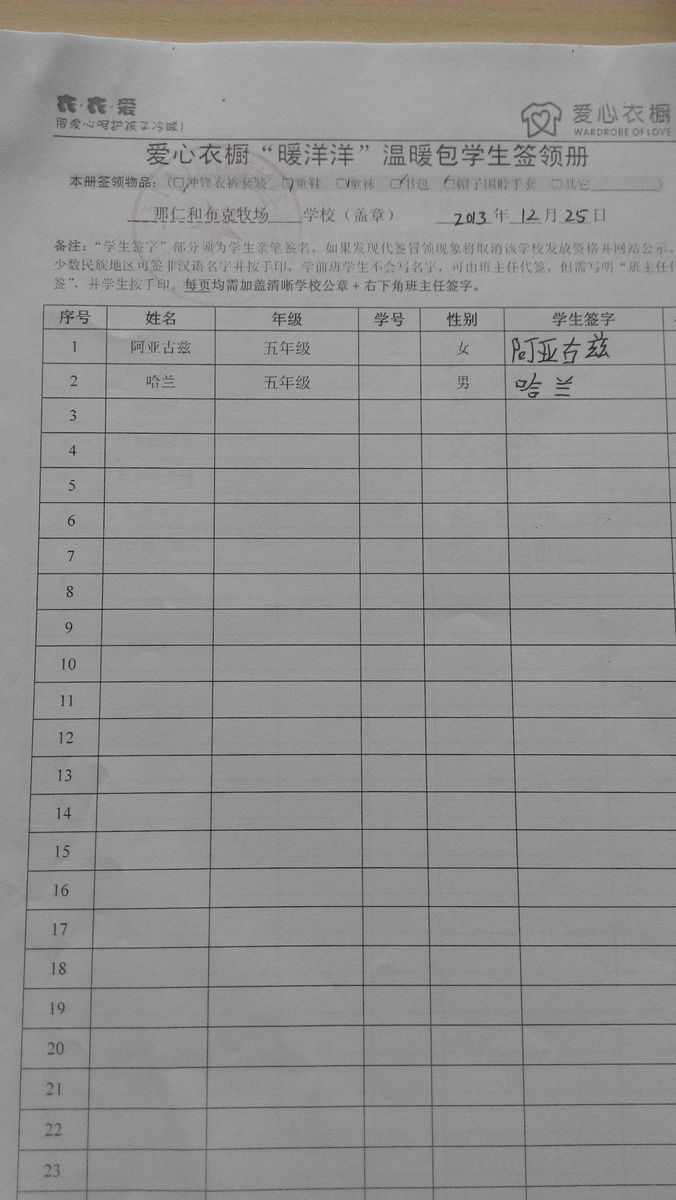 衣·衣·爱
用爱心呵护孩子冷暖!
爱心衣橱
WARDROBE OF LOVE
爱心衣橱“暖洋洋”温暖包学生签领册
本册签领物品:(□冲锋衣裤套装 □童鞋 □童袜 □书包 □帽子围脖手套 □其它
那仁和布克牧场 学校(盖章) 2013年12月25日
备注:“学生签字”部分须为学生亲笔签名,如果发现代签冒领现象将取消该学校发放资格并网站公示。
少数民族地区可签非汉语名字并按手印。学前班学生不会写名字,可由班主任代签,但需写明“班主任代
签”,并学生按手印。每页均需加盖清晰学校公章+右下角班主任签字。
序号 姓名 年级 学号 性别 学生签字
1 阿亚古兹 五年级 女 阿亚古兹
2 哈兰 五年级 男 哈兰
3
4
5
6
7
8
9
10
11
12
13
14
15
16
17
18
19
20
21
22
23